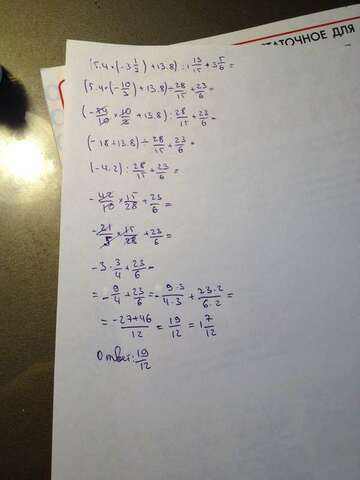 ТАТОЧНОЕ ДЛЯ
(5.4*(-3 1/3)+13.8):1 13/15+3 5/6=
(5.4*(-10/3)+13.8)÷28/15+23/6=
(-54/10×10/3+13.8):28/15+23/6=
(-18+13.8)÷28/15+23/6=
(-4.2):28/15+23/6=
-42/10×15/28+23/6=
-21/5×15/28+23/6=
-3·3/4+23/6=
=-9/4+23/6=-9·3/4·3+23·2/6·2=
=-27+46/12=19/12=1 7/12
Ответ: 19/12